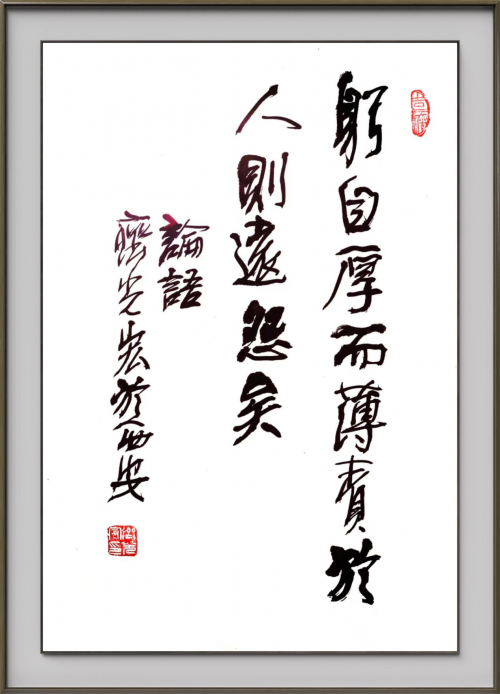 躬自厚而薄責於
人則遠怨矣
論語
齊光宏於西安